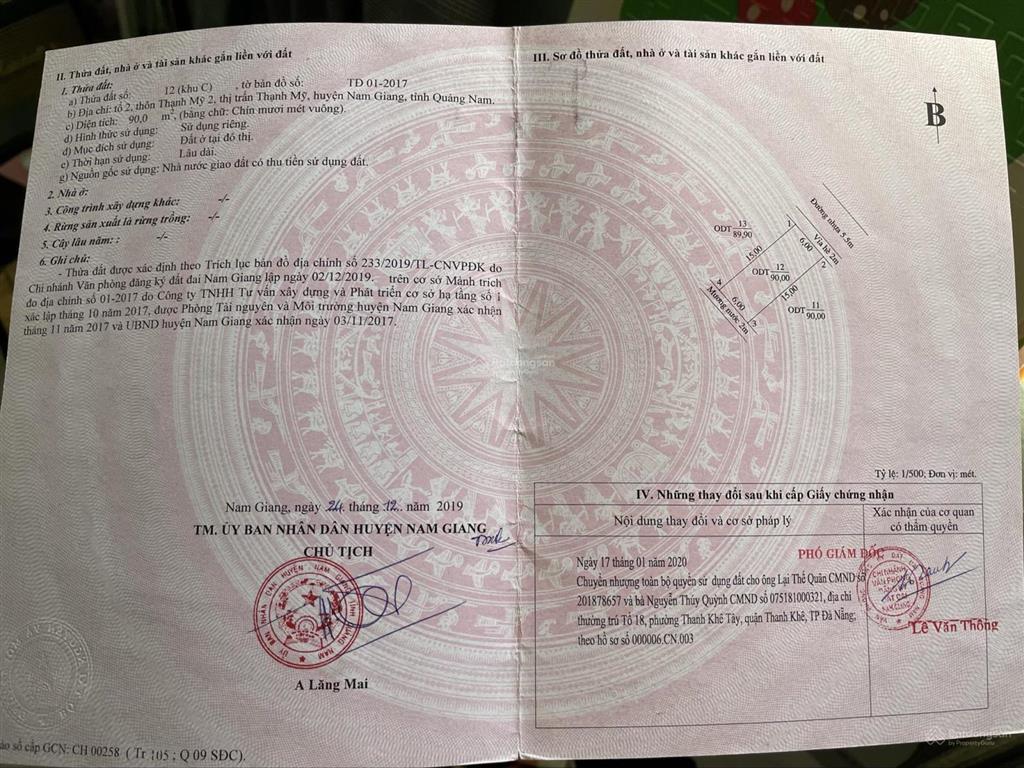 II. Thửa đất, nhà ở và tài sản khác gắn liền với đất
1. Thửa đất:
a) Thửa đất số: 12 (khu C) , tờ bản đồ số: TĐ 01-2017
b) Địa chỉ: tổ 2, thôn Thạnh Mỹ 2, thị trấn Thạnh Mỹ, huyện Nam Giang, tỉnh Quảng Nam.
c) Diện tích: 90,0 m², (bằng chữ: Chín mươi mét vuông).
d) Hình thức sử dụng: Sử dụng riêng.
đ) Mục đích sử dụng: Đất ở tại đô thị.
e) Thời hạn sử dụng: Lâu dài.
g) Nguồn gốc sử dụng: Nhà nước giao đất có thu tiền sử dụng đất.
2. Nhà ở:
3. Công trình xây dựng khác: -/-
4. Rừng sản xuất là rừng trồng: -/-
5. Cây lâu năm: : -/-
6. Ghi chú:
- Thửa đất được xác định theo Trích lục bản đồ địa chính số 233/2019/TL-CNVPĐK do
Chi nhánh Văn phòng đăng ký đất đai Nam Giang lập ngày 02/12/2019. trên cơ sở Mảnh trích
đo địa chính số 01-2017 do Công ty TNHH Tư vấn xây dựng và Phát triển cơ sở hạ tầng số 1
xác lập tháng 10 năm 2017, được Phòng Tài nguyên và Môi trường huyện Nam Giang xác nhận
tháng 11 năm 2017 và UBND huyện Nam Giang xác nhận ngày 03/11/2017.
Nam Giang, ngày 24 tháng 12. năm 2019
TM. ỦY BAN NHÂN DÂN HUYỆN NAM GIANG
CHỦ TỊCH
A Lăng Mai
vào sổ cấp GCN: CH 00258 ( Tr 105 ; Q 09 SĐC).
III. Sơ đồ thửa đất, nhà ở và tài sản khác gắn liền với đất
B
Đường nhựa 5.5m
Vỉa hè 2m
ODT 13
89,90
1
6,00
2
15,00
ODT 12
90,00
15,00
4
6,00
3
ODT 11
90,00
Mương nước 2m
Tỷ lệ: 1/500; Đơn vị: mét.
IV. Những thay đổi sau khi cấp Giấy chứng nhận
Nội dung thay đổi và cơ sở pháp lý
Xác nhận của cơ quan
có thẩm quyền
PHÓ GIÁM ĐỐC
Ngày 17 tháng 01 năm 2020
Chuyển nhượng toàn bộ quyền sử dụng đất cho ông Lại Thế Quân CMND số
201878657 và bà Nguyễn Thúy Quỳnh CMND số 075181000321, địa chỉ
thường trú Tổ 18, phường Thanh Khê Tây, quận Thanh Khê, TP Đà Nẵng;
theo hồ sơ số 000006.CN.003
Lê Văn Thông
by PropertyGuru